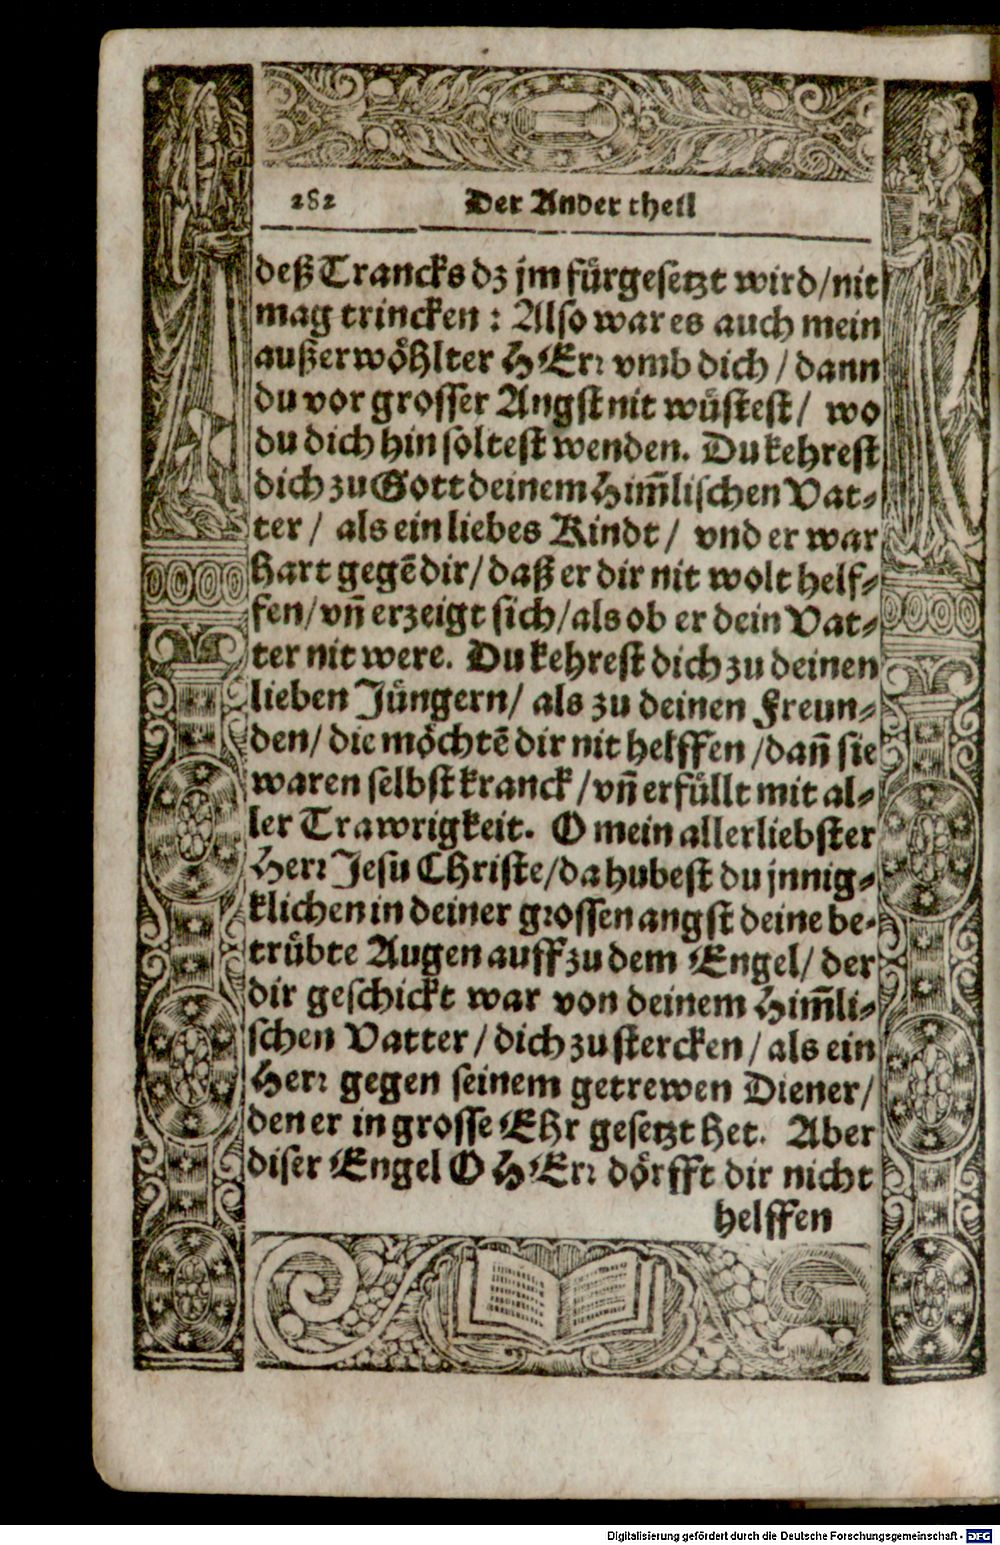 282 Der Ander theil
deß Trancks dz jm fürgesetzt wird/nit
mag trincken : Also war es auch mein
außerwöhlter HErr vmb dich / dann
du vor grosser Angst nit wüstest/ wo
du dich hin soltest wenden. Du kehrest
dich zu Gott deinem Him̃lischen Vat⸗
ter / als ein liebes Kindt / vnd er war
hart gegẽ dir/daß er dir nit wolt helf⸗
fen/vñ erzeigt sich/als ob er dein Vat⸗
ter nit were. Du kehrest dich zu deinen
lieben Jüngern/ als zu deinen Freun⸗
den/ die möchtẽ dir nit helffen /dañ sie
waren selbst kranck /vñ erfüllt mit al⸗
ler Trawrigkeit. O mein allerliebster
Herr Jesu Christe/da hubest du jnnig⸗
klichen in deiner grossen angst deine be⸗
trübte Augen auff zu dem Engel/ der
dir geschickt war von deinem Him̃li⸗
schen Vatter / dich zu stercken / als ein
Herr gegen seinem getrewen Diener/
den er in grosse Ehr gesetzt het. Aber
diser Engel O HErr dörfft dir nicht
helffen
Digitalisierung gefördert durch die Deutsche Forschungsgemeinschaft - DFG